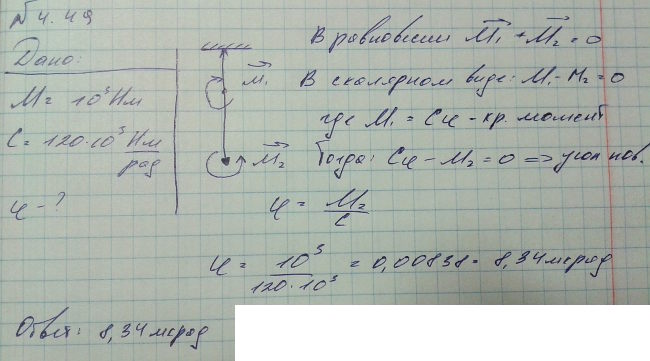 № 4.49
Дано:
M = 10³ Нм
C = 120·10³ Нм/рад
φ - ?
M₁
M₂
В равновесии M₁ + M₂ = 0
В скалярном виде: M₁ - M₂ = 0
где M₁ = Cφ - кр. момент
Тогда: Cφ - M₂ = 0 => угол пов.
φ = M₂/C
φ = 10³/120·10³ = 0,00838 = 8,34 мкрад
Ответ: 8,34 мкрад